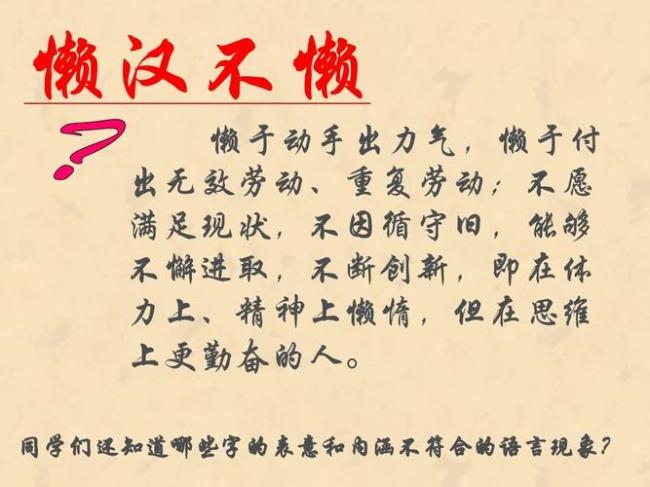 懒汉不懒
?
懒于动手出力气，懒于付
出无效劳动、重复劳动；不愿
满足现状，不因循守旧，能够
不懈进取，不断创新，即在体
力上、精神上懒惰，但在思维
上更勤奋的人。
同学们还知道哪些字的表意和内涵不符合的语言现象？